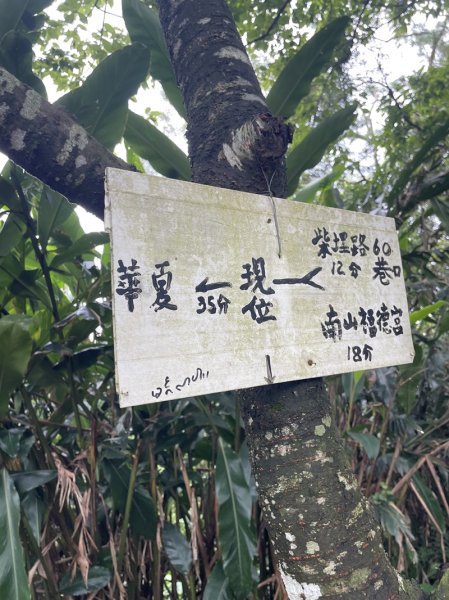 華夏
35分
現位
柴埕路60巷口
12分
南山福德宮
18分